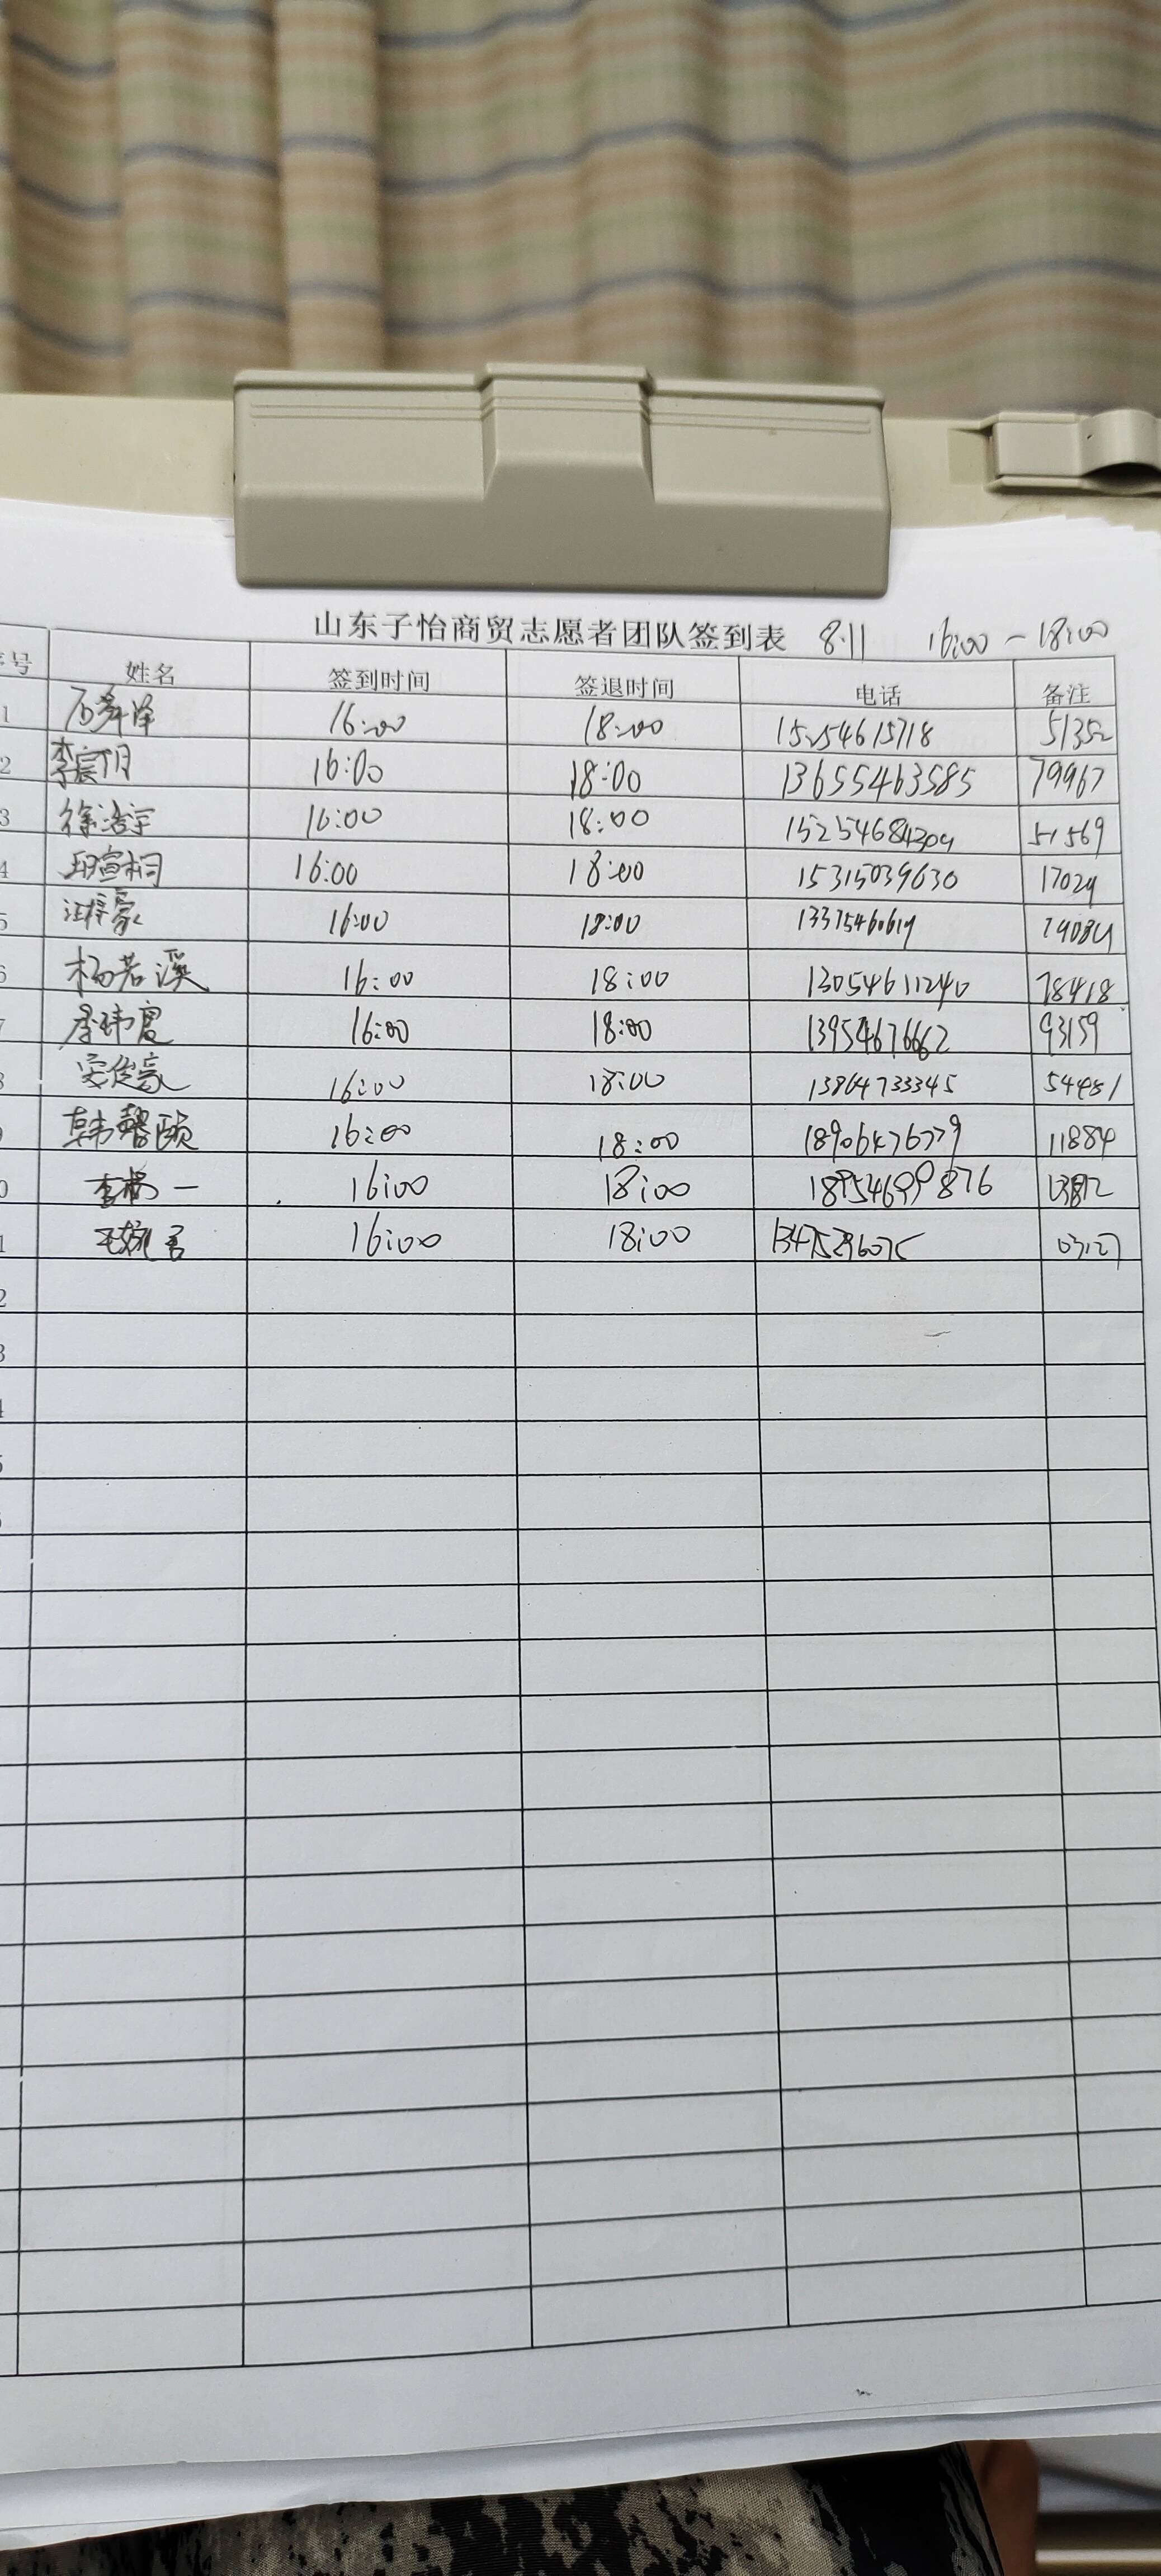 山东子怡商贸志愿者团队签到表 8.11 16:00-18:00
号 姓名 签到时间 签退时间 电话 备注
1 石舜泽 16:00 18:00 15254615718 51352
2 李宸玥 16:00 18:00 13655463585 79967
3 徐浩宇 16:00 18:00 15254684209 51569
4 宣桐 16:00 18:00 15315039630 17029
5 汪梓豪 16:00 18:00 13375460619
6 杨若溪 16:00 18:00 13054611240 78418
7 玮宸 16:00 18:00 13954676662 93159
8 安俊豪 16:00 18:00 13864733345 54481
9 韩馨颐 16:00 18:00 18906476779 11884
0 李杨一 16:00 18:00 18954699876
1 王婉君 16:00 18:00 13475296075 03127
2
3
4
5